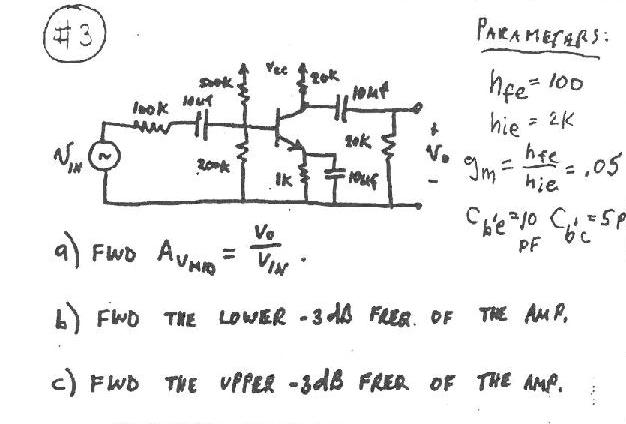 #3
PARAMETERS:
hfe = 100
hie = 2K
gm = hfe / hie = .05
Cb'e = 10 PF Cb'c = 5P
Vcc
500K
20K
10uf
100K
10uf
VIN
200K
1K
10uf
20K
+
Vo
-
a) FIND AVMID = Vo / VIN .
b) FIND THE LOWER -3dB FREQ. OF THE AMP.
c) FIND THE UPPER -3dB FREQ OF THE AMP.